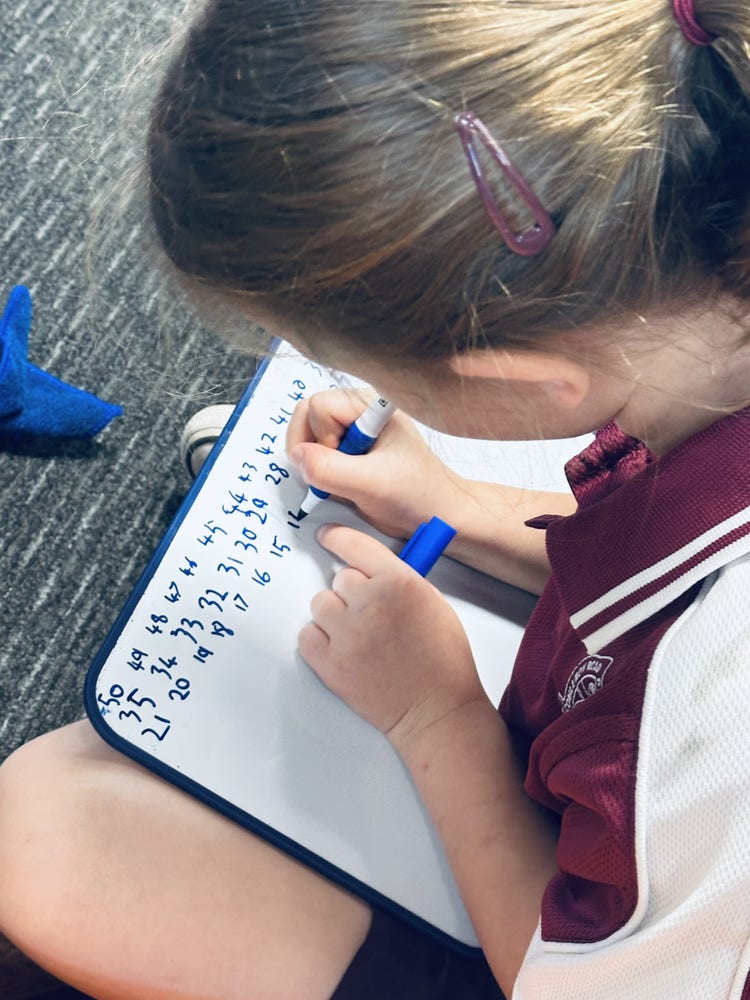 50 49 48 47 46 45 44 43 42 41 40
35 34 33 32 31 30 29 28
21 20 19 18 17 16 15